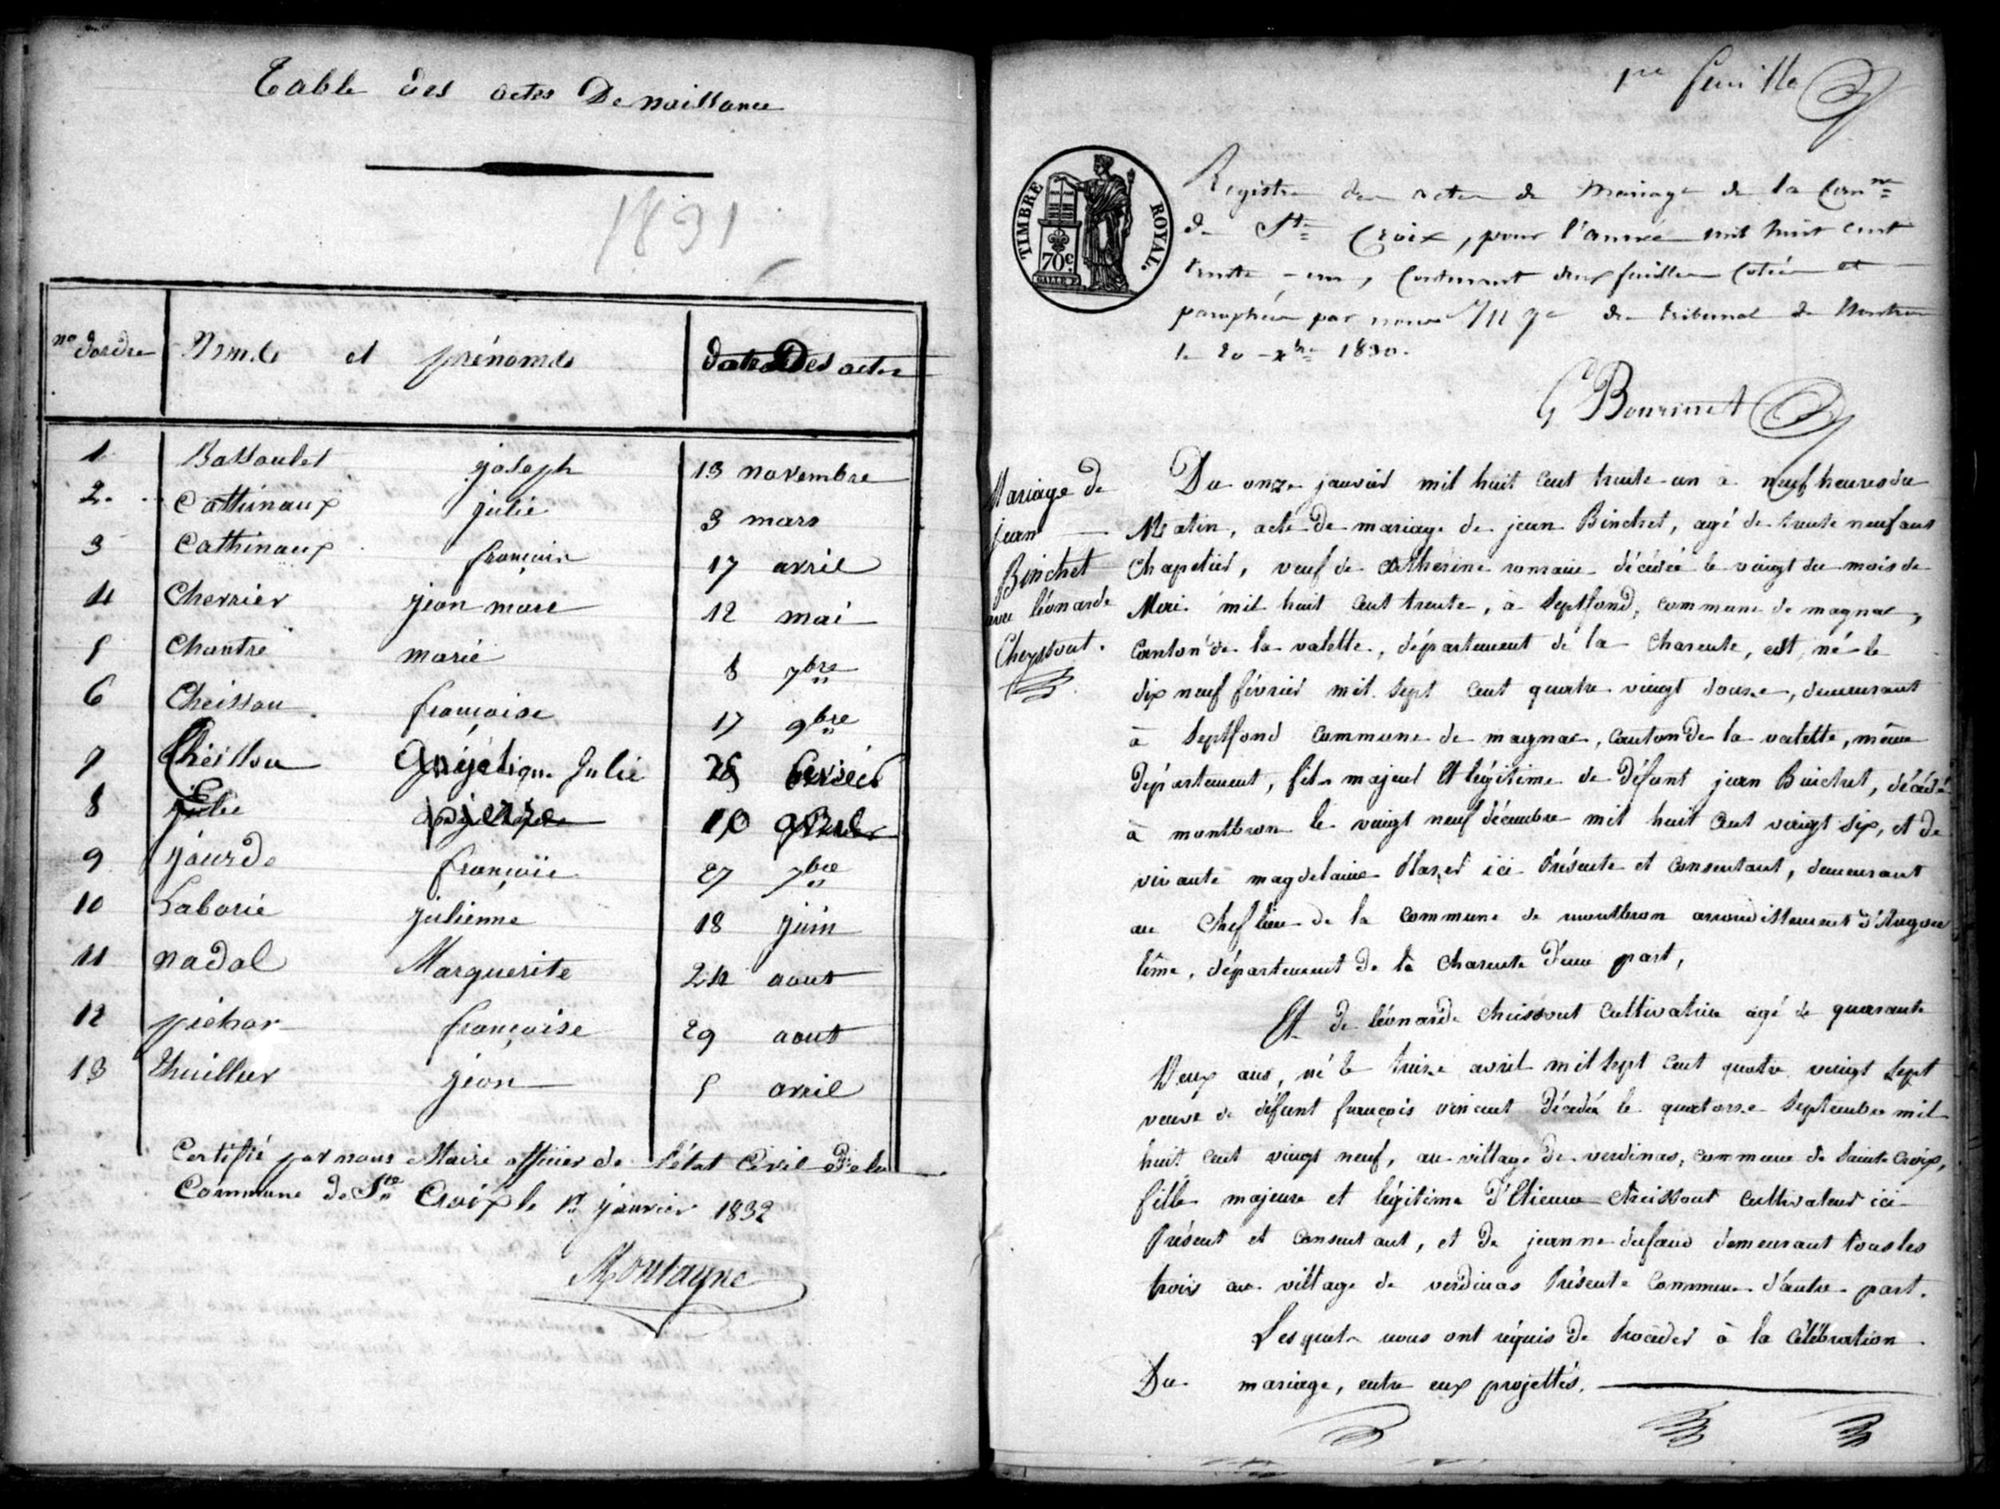 Table des actes De naissance
1831
no d'ordre Noms et prénoms dates Des actes
1 Bassoulet joseph 13 novembre
2. Cathinaux julie 3 mars
3 Cathinaux françois 17 avril
4 Cherrier jean marc 12 mai
5 Chantre marie 8 7bre
6 Cheissou françoise 17 9bre
7 Cheissou Angélique Julie 25
8 pierre 10
9 jourde françois 27 7bre
10 Laborie julienne 18 juin
11 nadal Marguerite 24 aout
12 pichar françoise 29 aout
13 thuillier jean 5 avril
Certifié par nous Maire officier de l'état Civil De la
Commune de Ste Croix le 1r janvier 1832
Montagne
1re feuille
TIMBRE ROYAL.
70c
Registre des actes de Mariage de la Comne
de Ste Croix, pour l'année mil huit cent
trente-un, Contenant deux feuilles Cotées et
paraphées par nous Juge du tribunal de Nontron
le 20 xbre 1830.
G Bourinet
Mariage de
jean
Binchet
avec léonarde
Cheyssout.
Du onze janvier mil huit cent trente-un à neuf heures du
Matin, acte de mariage de jean Binchet, agé de trente neuf ans
Chapelier, veuf de Cathérine romain décédée le vingt du mois de
Mai mil huit cent trente, à Septfond, commune de magnac,
Canton de la valette, département de la Charente, est né le
dix neuf février mil sept cent quatre vingt douze, demeurant
à Septfond Commune de magnac, Canton de la valette, même
Département, fils majeur et légitime de défunt jean Binchet, décédé
à montbron le vingt neuf décembre mil huit cent vingt six, et de
vivante magdelaine ici Présente et Consentant, demeurant
au Chef lieu de la Commune de montbron arrondissement d'Angou
lême, département de la Charente D'une part,
Et de léonarde Cheissout Cultivatrice agé de quarante
Deux ans, né le treize avril mil sept cent quatre vingt sept
veuve de défunt françois vincent Décédé le quatorze Septembre mil
huit cent vingt neuf, au village de verdinas, Commune de Sainte Croix,
fille majeure et légitime D'Etienne Cheissout Cultivateur ici
Présent et Consentant, et de jeanne dufaud demeurant tous les
trois au village de verdinas Présente Commune D'autre part.
Lesquels nous ont réquis de Procéder à la Célébration
Du mariage, entre eux projettés.